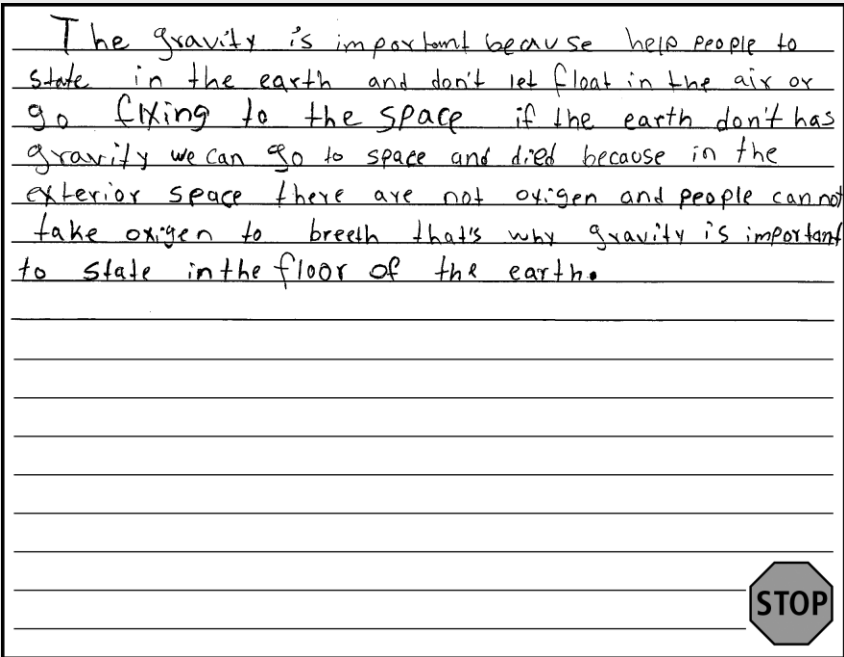 The gravity is important becuse help people to
state in the earth and don't let float in the air or
go flying to the space if the earth don't has
gravity we can go to space and died because in the
exterior space there are not oxigen and people cannot
take oxigen to breeth that's why gravity is important
to state in the floor of the earth.
STOP